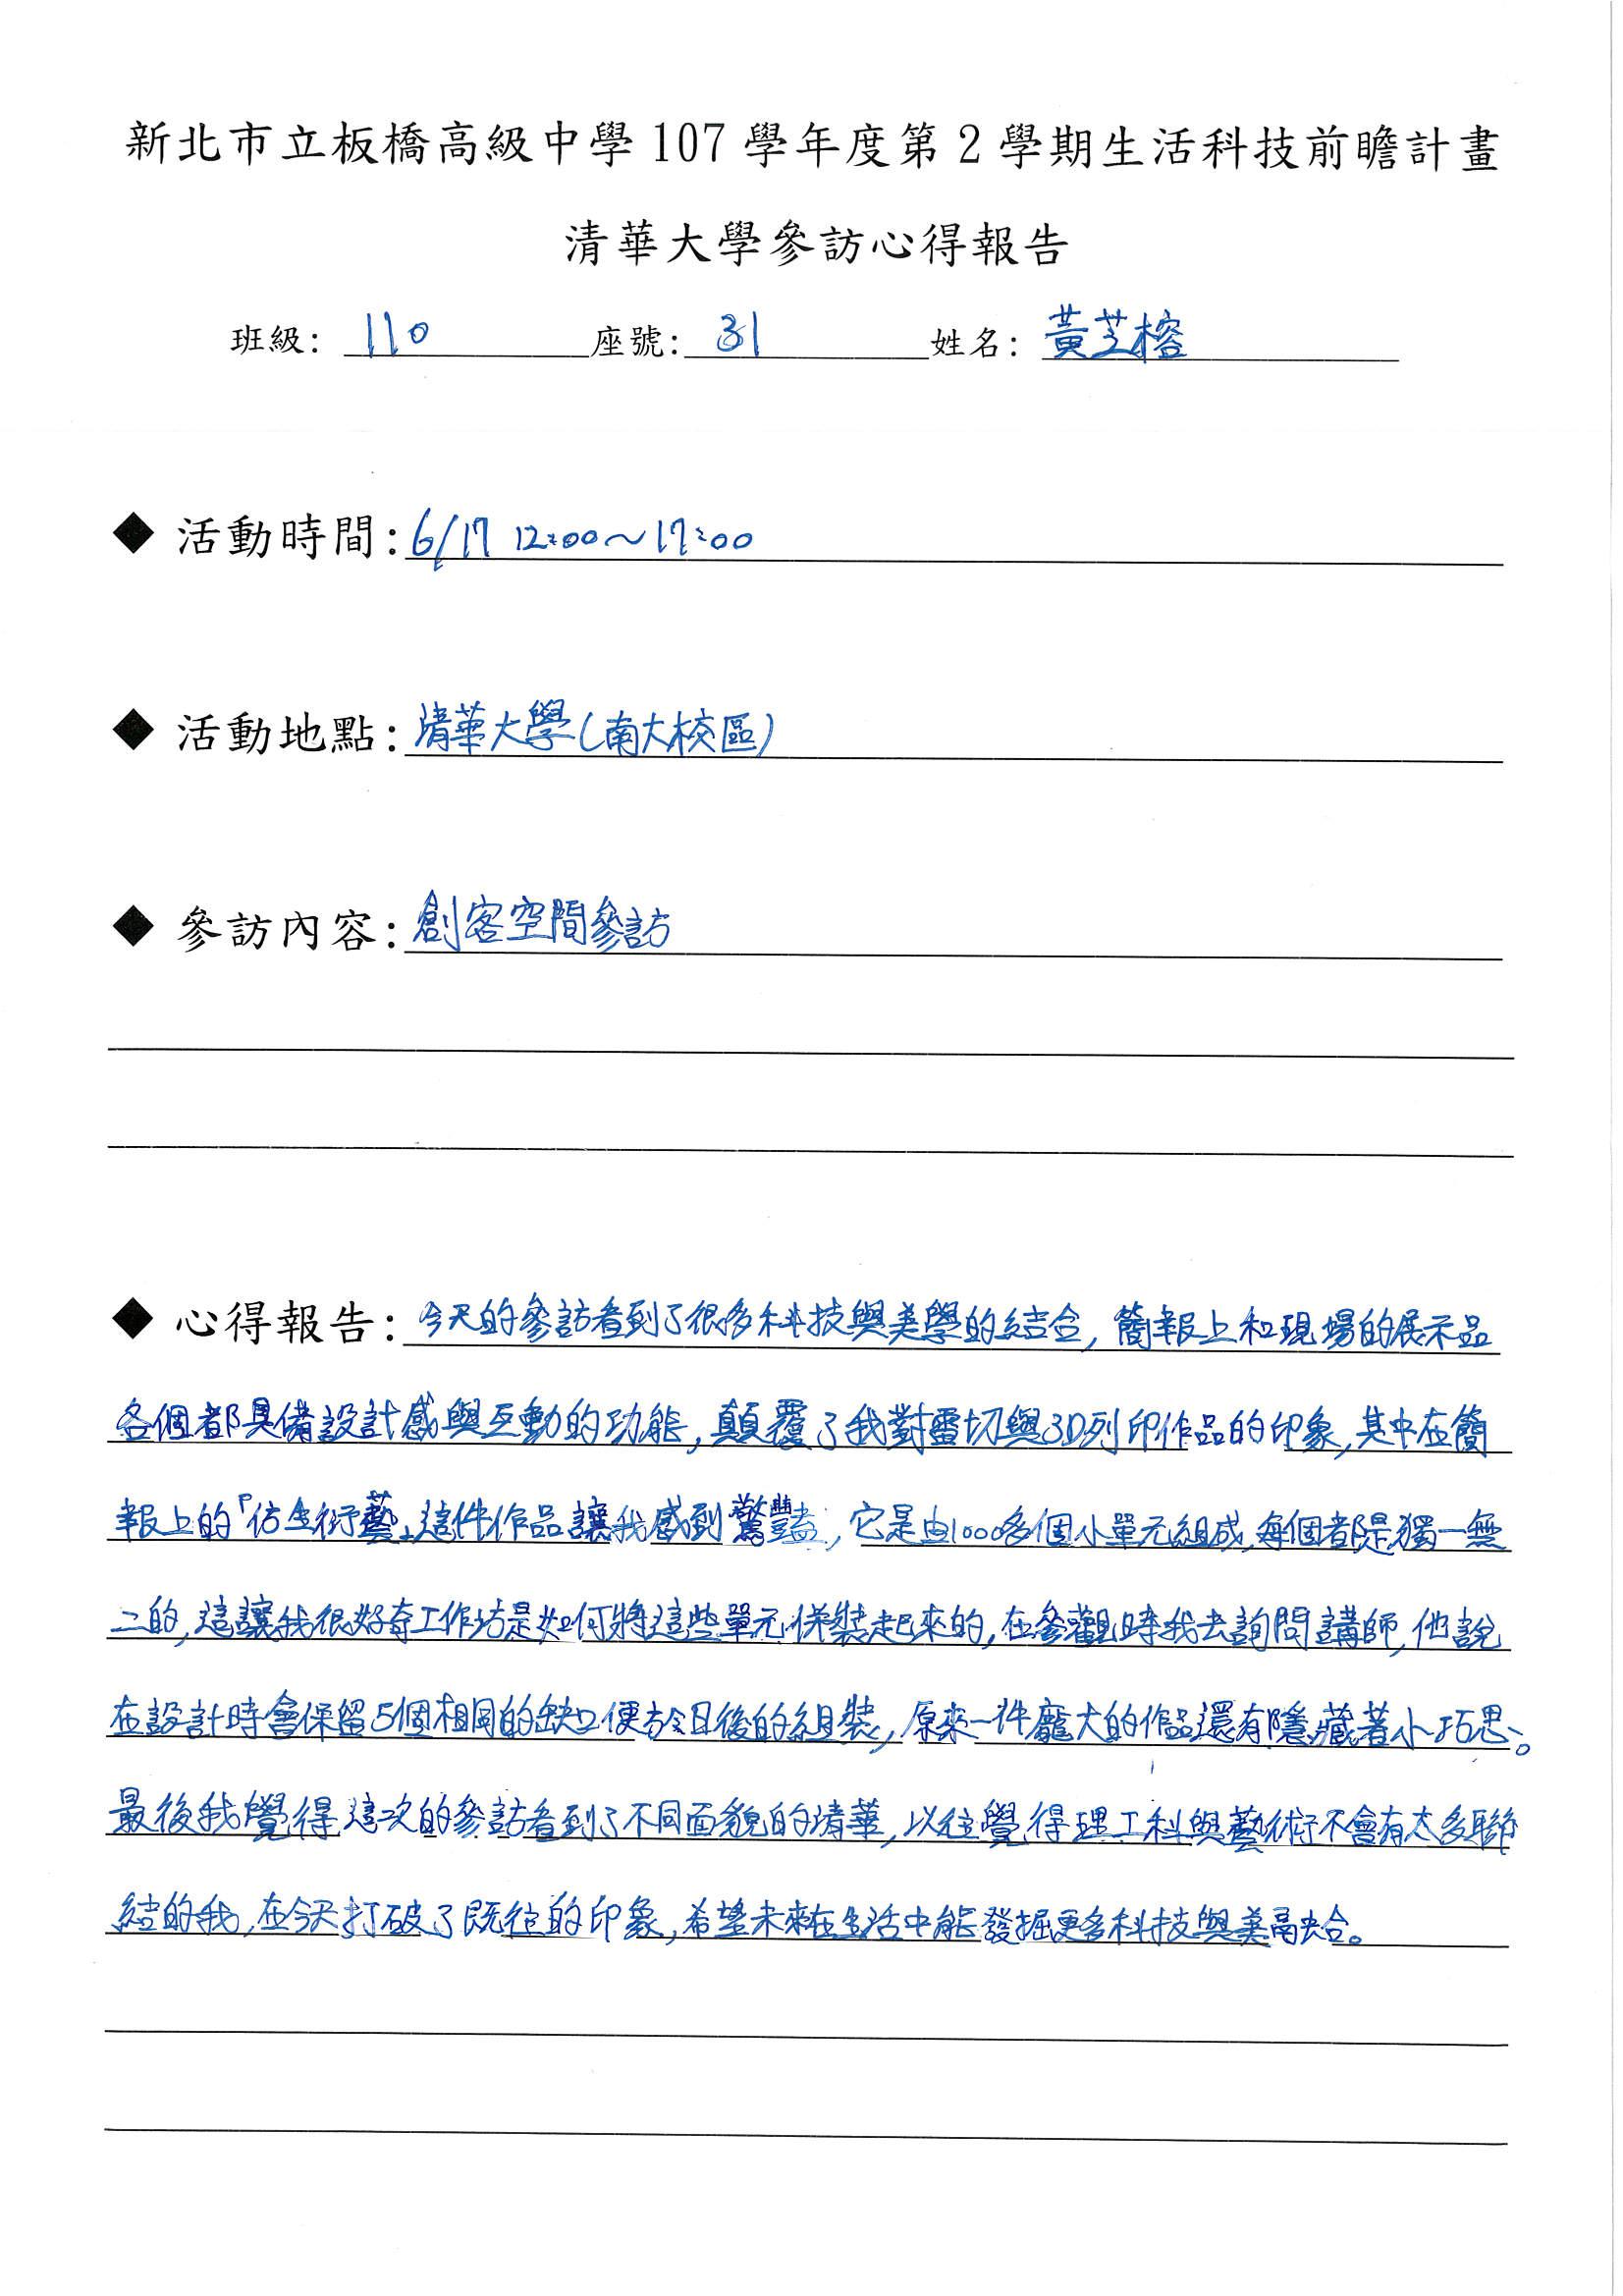 新北市立板橋高級中學 107 學年度第 2 學期生活科技前瞻計畫
清華大學參訪心得報告
班級: 110 座號: 31 姓名: 黃芝榕
◆ 活動時間: 6/17 12:00～17:00
◆ 活動地點: 清華大學(南大校區)
◆ 參訪內容: 創客空間參訪
◆ 心得報告: 今天的參訪看到了很多科技與美學的結合, 簡報上和現場的展示品
各個都具備設計感與互動的功能, 顛覆了我對雷切與3D列印作品的印象, 其中在簡
報上的「仿生術藝」這件作品讓我感到驚豔, 它是由1000多個小單元組成, 每個都是獨一無
二的, 這讓我很好奇工作坊是如何將這些單元併裝起來的, 在參觀時我去詢問講師, 他說
在設計時會保留5個相同的缺口便於日後的組裝, 原來一件龐大的作品還有隱藏著小巧思。
最後我覺得這次的參訪看到了不同面貌的清華, 以往覺得理工科與藝術不會有太多聯
結的我, 在今天打破了既往的印象, 希望未來在生活中能發掘更多科技與美融合。